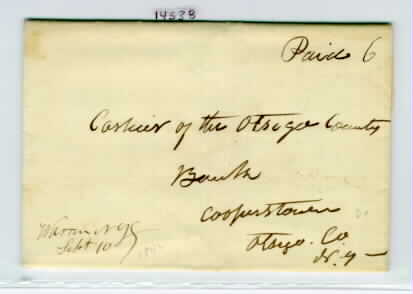 14538
Paid 6
Cashier of the Otsego County
Bank
Cooperstown
Otsego. Co
N. Y
Warren NY
Sept 10